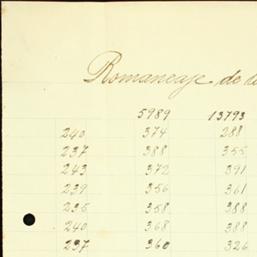 Romaneaje de
5989 13793
240 374 288
237 388 355
243 372 391
239 356 361
235 358 388
240 368 388
237 360 326